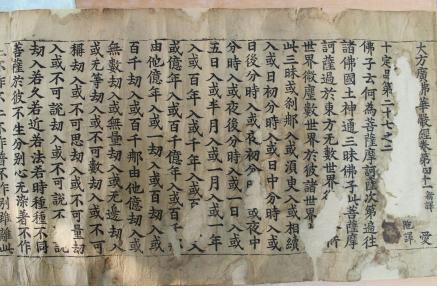 大方廣佛華嚴經卷第四十一 新譯
愛
陁譯
十定品第二十七之二
佛子云何為菩薩摩訶薩次第遍往
諸佛國土神通三昧佛子此菩薩摩
訶薩過於東方無數世界
世界微塵數世界於彼諸世界
此三昧或剎那入或須臾入或相續
入或日初分時入或日中分時入或
日後分時入或夜初分 或夜中
分時入或夜 分時入或一日入或
五日入或半月入或一月入或一年
入或百年入或千年入或
或億年入或百千億年入或百千
由他億年入或一劫入或百劫入或
百千劫入或百千那由他億劫入或
無數劫入或無量劫入或無邊劫入
或無等劫入或不可數劫入或不可
稱劫入或不可思劫入或不可量劫
入或不可說劫入或不可說不
劫入若久若近若法若時種種不同
菩薩於彼不生分別心無染著不作
二不作不二不作普不作別雖離此